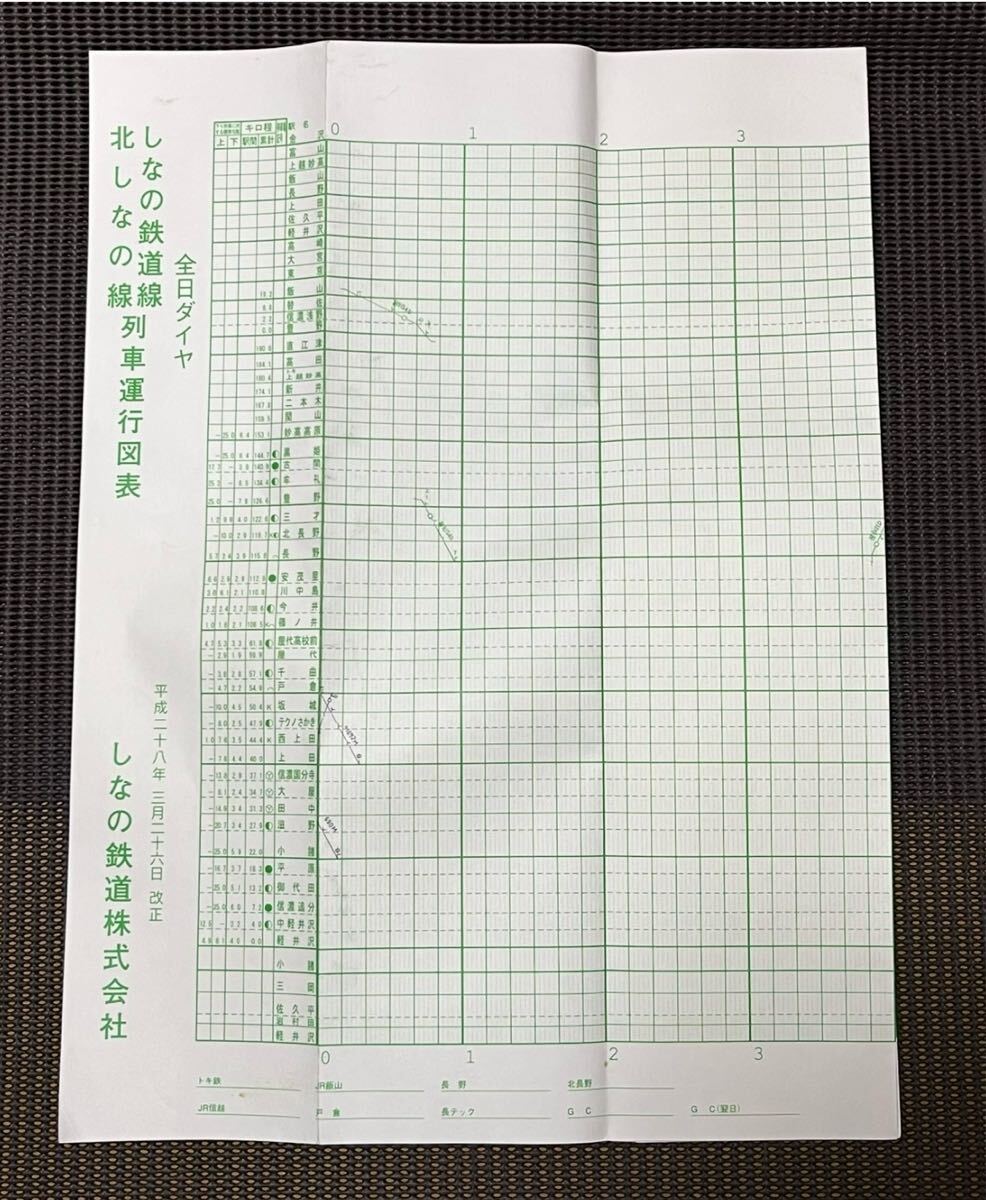 全日ダイヤ
しなの鉄道線
北しなの線
列車運行図表
平成二十八年 三月二十六日 改正
しなの鉄道株式会社
上 下 駅間 累計 キロ程 駅名
0 1 2 3
金沢
富山
上越妙高
飯山
長野
上田
佐久平
軽井沢
高崎
大宮
東京
19.2 飯山
替佐
2.2 信濃浅野
0.0 豊野
190.8 直江津
184.1 高田
180.4 上越妙高
174.1 新井
167.8 二本木
159.5 関山
－ 25.0 8.4 153.1 妙高高原
－ 25.0 8.4 144.7 黒姫
古間
牟礼
25.0 － 7.8 126.6 豊野
1.2 9.8 4.0 122.6 三才
－ 10.0 2.9 118.7 北長野
5.7 3.4 3.9 115.8 長野
6.6 2.9 2.9 112.9 安茂里
3.8 6.1 2.1 110.8 川中島
2.2 2.4 2.2 108.6 今井
1.0 1.6 2.1 106.5 篠ノ井
4.7 5.3 3.3 61.8 屋代高校前
－ 2.9 1.9 59.9 屋代
－ 3.6 2.8 57.1 千曲
－ 4.7 2.2 54.9 戸倉
－ 10.0 4.5 50.4 K 坂城
－ 8.0 2.5 47.9 テクノさかき
1.0 7.6 3.5 44.4 K 西上田
－ 7.6 4.4 40.0 上田
－ 13.8 2.9 37.1 信濃国分寺
－ 8.1 2.4 34.7 大屋
－ 14.9 3.4 31.3 田中
－ 20.7 3.4 27.9 滋野
－ 25.0 5.9 22.0 小諸
－ 16.7 3.7 18.3 平原
－ 25.0 5.1 13.2 御代田
－ 25.0 6.0 7.2 信濃追分
12.5 － 3.2 4.0 中軽井沢
4.9 8.1 4.0 0.0 軽井沢
小諸
三岡
佐久平
岩村田
軽井沢
0 1 2 3
トキ鉄
JR飯山
長野
北長野
JR信越
戸倉
長テック
GC
GC(翌日)